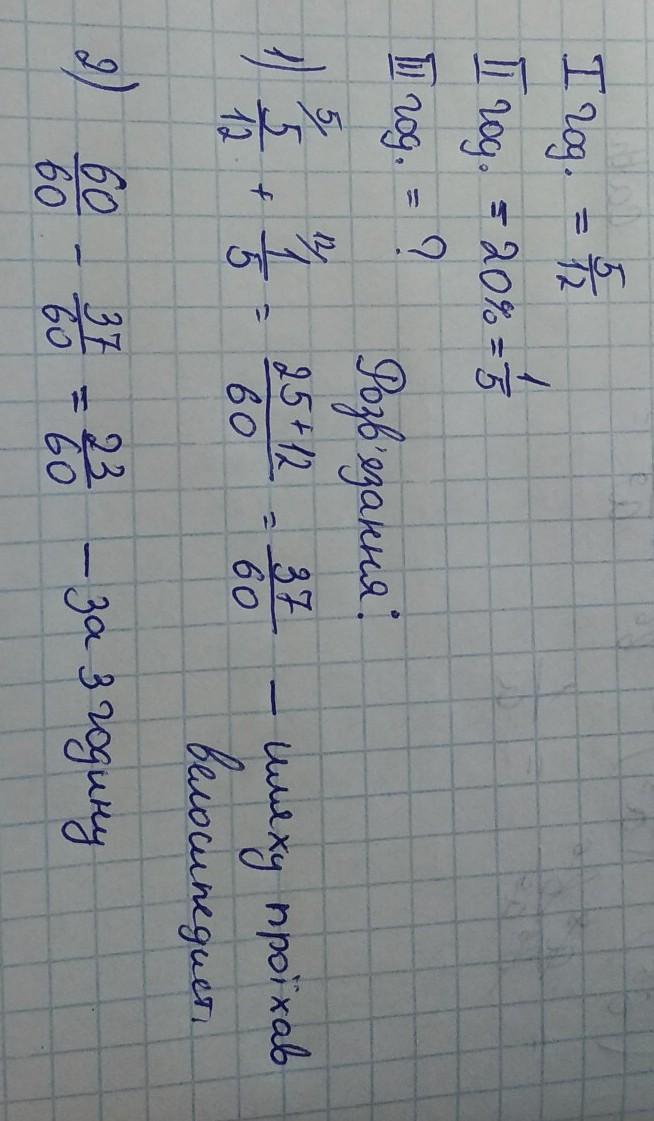 I год. = 5/12
II год. = 20% = 1/5
III год. = ?
Розв'язання:
1) 5/ 5/12 + 12/ 1/5 = 25+12/60 = 37/60 – шляху проїхав
велосипедист
2) 60/60 - 37/60 = 23/60 – за 3 годину